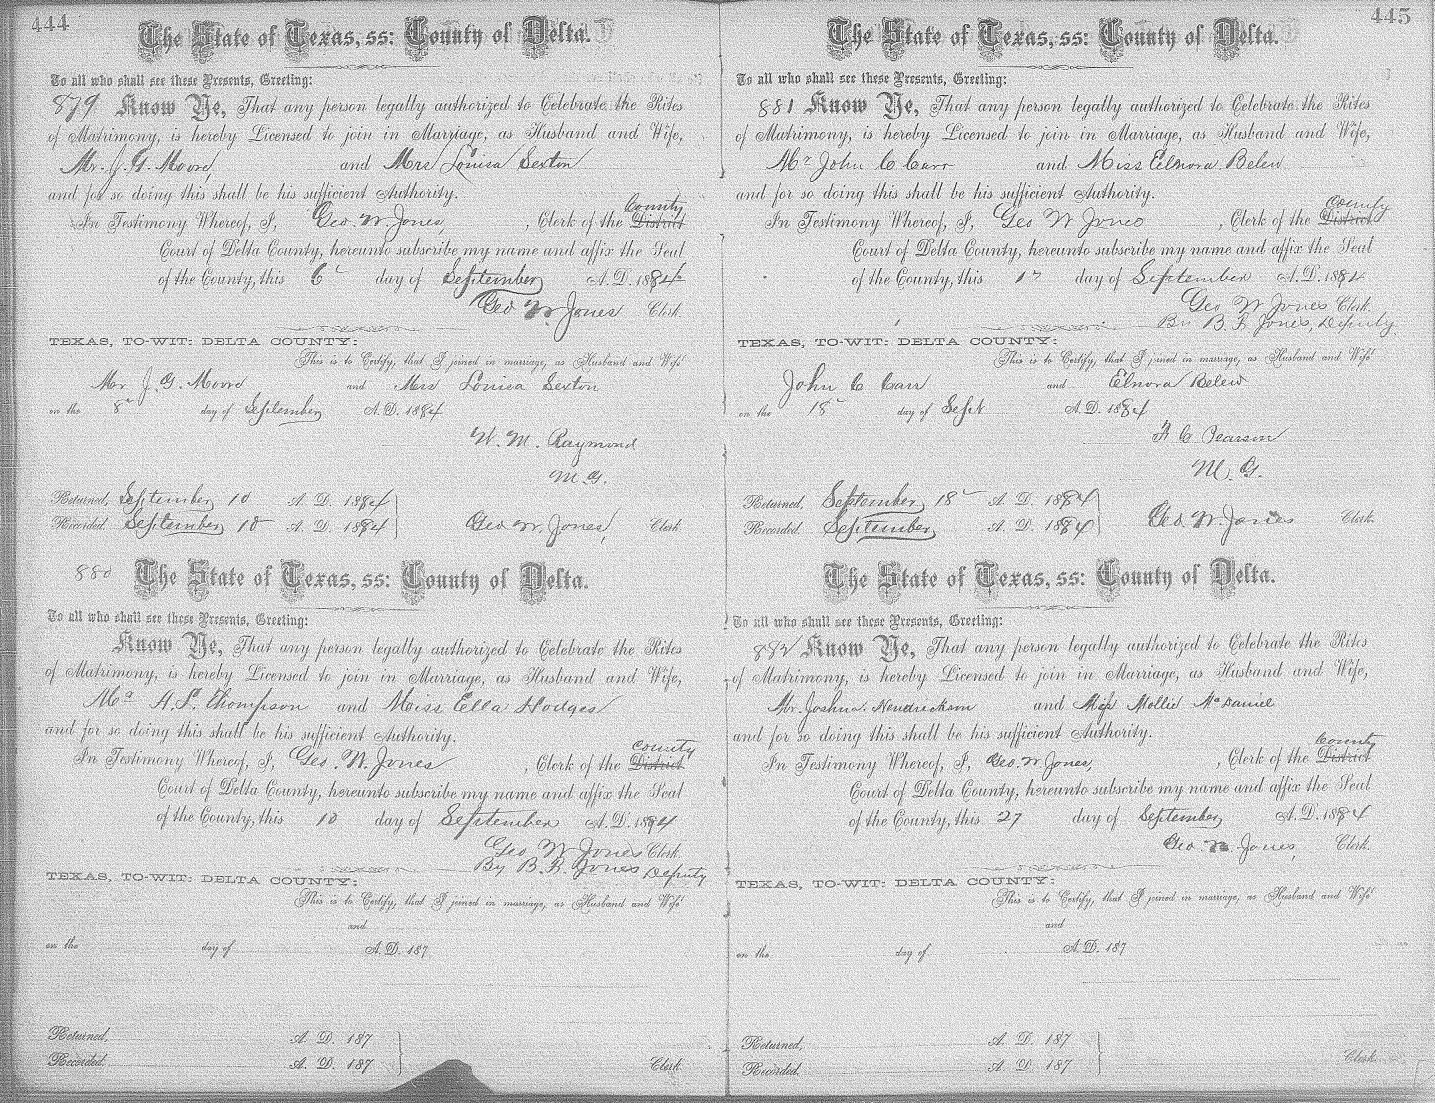 444
The State of Texas, ss: County of Delta.
To all who shall see these Presents, Greeting:
879 Know Ye, That any person legally authorized to Celebrate the Rites
of Matrimony, is hereby Licensed to join in Marriage, as Husband and Wife,
Mr. J. G. Moore, and Mrs Louisa Sexton
and for so doing this shall be his sufficient Authority.
County
In Testimony Whereof, I, Geo. W. Jones, , Clerk of the District
Court of Delta County, hereunto subscribe my name and affix the Seal
of the County, this 6 day of September A. D. 1884
Geo W. Jones Clerk.
TEXAS, TO-WIT: DELTA COUNTY:
This is to Certify, that I joined in marriage, as Husband and Wife
Mr J. G. Moore and Mrs Louisa Sexton
on the 8 day of September A. D. 1884
W. M. Raymond
M. G.
Returned, September 10 A. D. 1884
Recorded. September 10 A. D. 1884 Geo W. Jones, Clerk
880 The State of Texas, ss: County of Delta.
To all who shall see these Presents, Greeting:
Know Ye, That any person legally authorized to Celebrate the Rites
of Matrimony, is hereby Licensed to join in Marriage, as Husband and Wife,
Thompson and Miss Ella Hodges
and for so doing this shall be his sufficient Authority.
County
In Testimony Whereof, I, Geo. W. Jones , Clerk of the District
Court of Delta County, hereunto subscribe my name and affix the Seal
of the County, this 10 day of September A. D. 1884
Geo W Jones Clerk.
By B. F. Jones Deputy
TEXAS, TO-WIT: DELTA COUNTY:
This is to Certify, that I joined in marriage, as Husband and Wife
and
on the day of A. D. 187
Returned, A. D. 187
Recorded. A. D. 187 Clerk.
445
The State of Texas, ss: County of Delta.
To all who shall see these Presents, Greeting:
881 Know Ye, That any person legally authorized to Celebrate the Rites
of Matrimony, is hereby Licensed to join in Marriage, as Husband and Wife,
Mr John C Carr and Miss Elnora Belew
and for so doing this shall be his sufficient Authority.
County
In Testimony Whereof, I, Geo W Jones , Clerk of the District
Court of Delta County, hereunto subscribe my name and affix the Seal
of the County, this day of September A. D. 1884
Geo W Jones Clerk.
By B. F. Jones, Deputy
TEXAS, TO-WIT: DELTA COUNTY:
This is to Certify, that I joined in marriage, as Husband and Wife
John C Carr and Elnora Belew
on the 18 day of Sept A. D. 1884
C Pearson
M. G.
Returned, September 18 A. D. 1884
Recorded. September A. D. 1884 Geo. W. Jones Clerk.
The State of Texas, ss: County of Delta.
To all who shall see these Presents, Greeting:
882 Know Ye, That any person legally authorized to Celebrate the Rites
of Matrimony, is hereby Licensed to join in Marriage, as Husband and Wife,
Mr. Joshua Hendrickson and Miss Mollie McDaniel
and for so doing this shall be his sufficient Authority.
County
In Testimony Whereof, I, Geo. W Jones, , Clerk of the District
Court of Delta County, hereunto subscribe my name and affix the Seal
of the County, this 27 day of September A. D. 1884
Geo. W. Jones, Clerk.
TEXAS, TO-WIT: DELTA COUNTY:
This is to Certify, that I joined in marriage, as Husband and Wife
and
on the day of A. D. 187
Returned, A. D. 187
Recorded. A. D. 187 Clerk